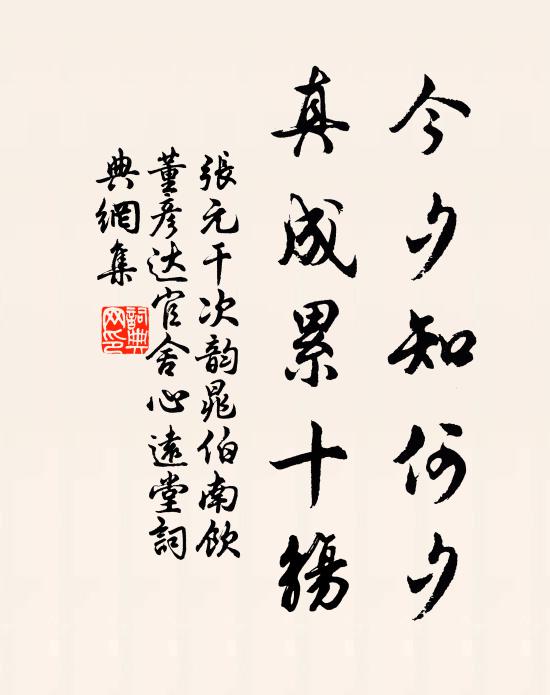 今夕知何夕
真成累十觴
張元干次韵晁伯南飲
董彥达官舍心遠堂詞
典網集
詞典
网印